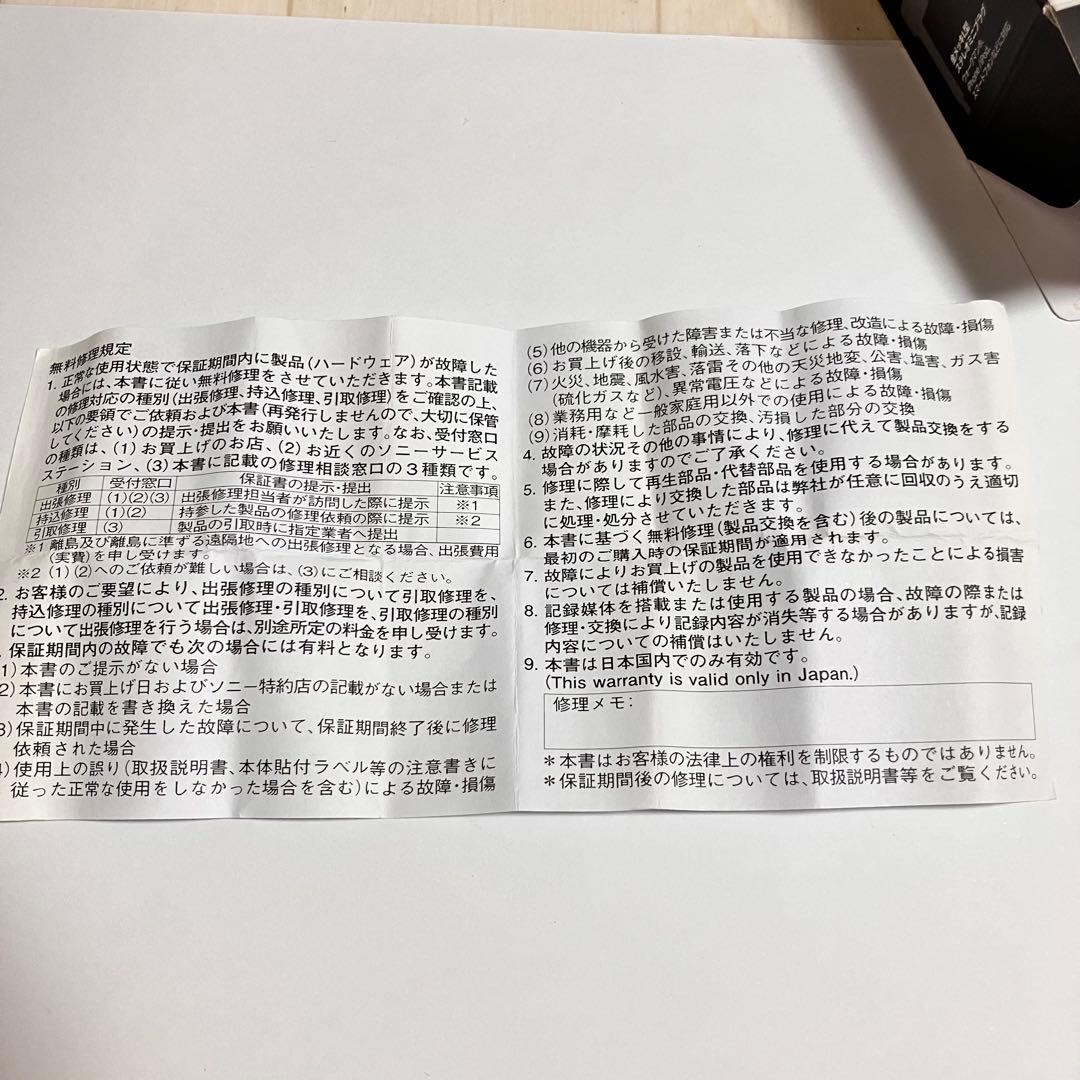 無料修理規定
1. 正常な使用状態で保証期間内に製品(ハードウェア)が故障した
場合には、本書に従い無料修理をさせていただきます。本書記載
の修理対応の種別(出張修理、持込修理、引取修理)をご確認の上、
以下の要領でご依頼および本書(再発行しませんので、大切に保管
してください)の提示・提出をお願いいたします。なお、受付窓口
の種類は、(1)お買上げのお店、(2)お近くのソニーサービス
ステーション、(3)本書に記載の修理相談窓口の3種類です。
種別 受付窓口 保証書の提示・提出 注意事項
出張修理 (1)(2)(3) 出張修理担当者が訪問した際に提示 ※1
持込修理 (1)(2) 持参した製品の修理依頼の際に提示 ※2
引取修理 (3) 製品の引取時に指定業者へ提出
※1 離島及び離島に準ずる遠隔地への出張修理となる場合、出張費用
(実費)を申し受けます。
※2 (1)(2)へのご依頼が難しい場合は、(3)にご相談ください。
2. お客様のご要望により、出張修理の種別について引取修理を、
持込修理の種別について出張修理・引取修理を、引取修理の種別
について出張修理を行う場合は、別途所定の料金を申し受けます。
. 保証期間内の故障でも次の場合には有料となります。
1)本書のご提示がない場合
2)本書にお買上げ日およびソニー特約店の記載がない場合または
本書の記載を書き換えた場合
3)保証期間中に発生した故障について、保証期間終了後に修理
依頼された場合
4)使用上の誤り(取扱説明書、本体貼付ラベル等の注意書きに
従った正常な使用をしなかった場合を含む)による故障・損傷
(5)他の機器から受けた障害または不当な修理、改造による故障・損傷
(6)お買上げ後の移設、輸送、落下などによる故障・損傷
(7)火災、地震、風水害、落雷その他の天災地変、公害、塩害、ガス害
(硫化ガスなど)、異常電圧などによる故障・損傷
(8)業務用など一般家庭用以外での使用による故障・損傷
(9)消耗・摩耗した部品の交換、汚損した部分の交換
4. 故障の状況その他の事情により、修理に代えて製品交換をする
場合がありますのでご了承ください。
5. 修理に際して再生部品・代替部品を使用する場合があります。
また、修理により交換した部品は弊社が任意に回収のうえ適切
に処理・処分させていただきます。
6. 本書に基づく無料修理(製品交換を含む)後の製品については、
最初のご購入時の保証期間が適用されます。
7. 故障によりお買上げの製品を使用できなかったことによる損害
については補償いたしません。
8. 記録媒体を搭載または使用する製品の場合、故障の際または
修理・交換により記録内容が消失等する場合がありますが、記録
内容についての補償はいたしません。
9. 本書は日本国内でのみ有効です。
(This warranty is valid only in Japan.)
修理メモ:
＊本書はお客様の法律上の権利を制限するものではありません。
＊保証期間後の修理については、取扱説明書等をご覧ください。